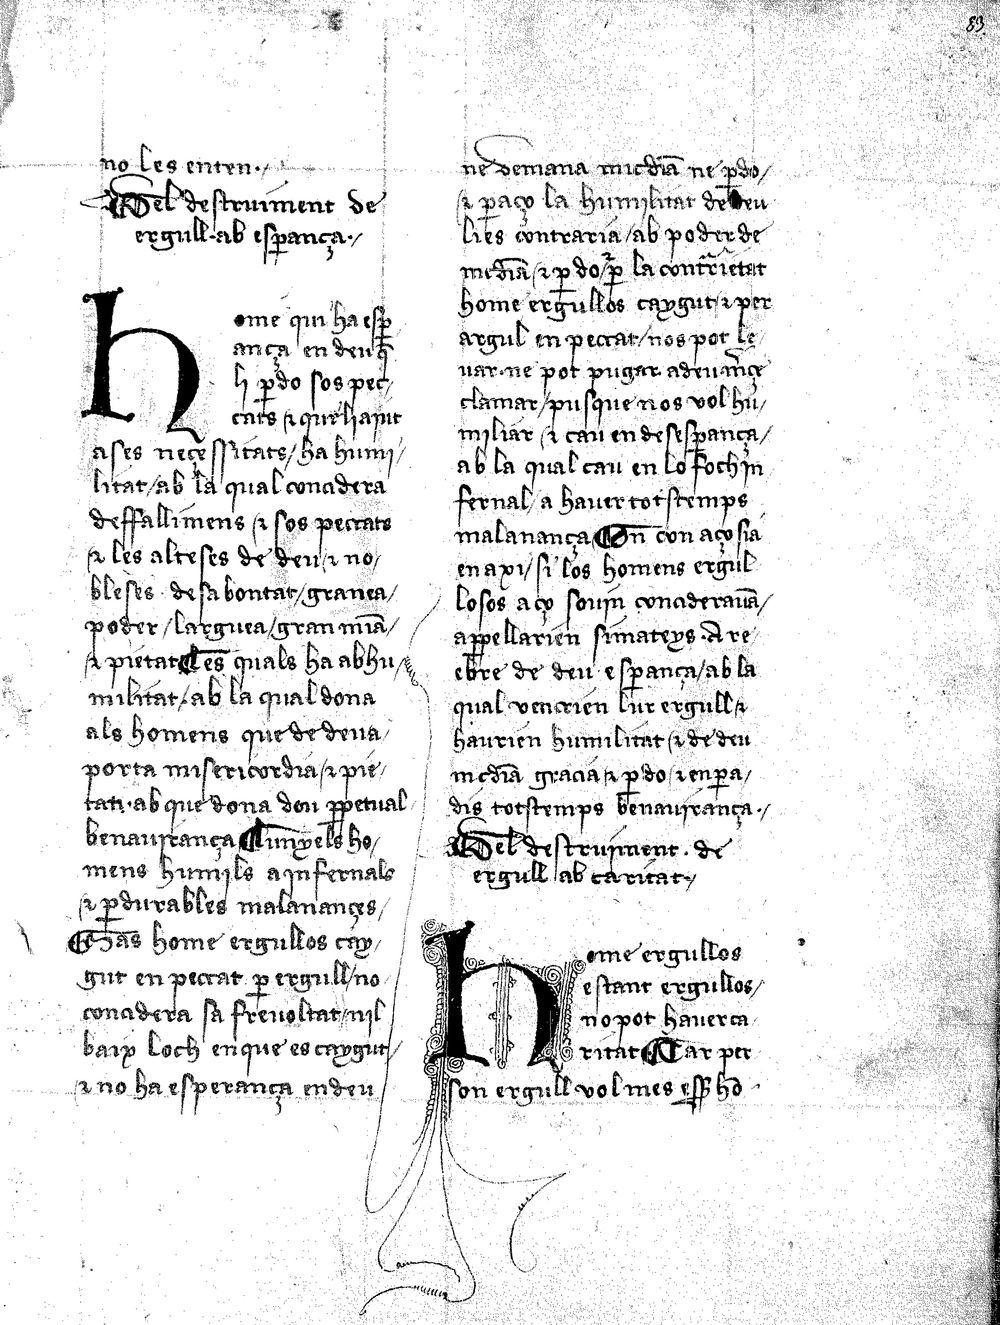 83
no les enten./
¶ Del destruiment de
ergull·ab esp̱ança·/
home qui ha esp̱
ança en deu q̄
li p̱do sos pec/
cats ⁊ que li aiut
a ses neçessitats/ ha humi/
litat/ab la qual concidera
deffallimens ⁊ sos peccats
⁊ les alteses de deu/⁊ no/
bleses de sa bontat/granea/
poder/larguea/gran mīa/
⁊ pietat ¶ les quals ha ab hu/
militat/ab la qual dona
als homens que dedeua/
porta misericordia/⁊ pie/
tat·ab que dona deu pp̱etual
benauirança ¶ lunyels ho/
mens humils a infernals
⁊ p̱durables malanançes/
¶ Mas home ergullos cay/
gut en peccat p̱ ergull/no
concidera sa freuoltat/nil
baix loch en que es caygut/
⁊ no ha esperança en deu
ne demana mīcdiā ne p̱do/
⁊ p̱ aço la humilitat de deu
lies contraria/ab poder de
mīcdiā/⁊ p̱do/p̱ la contrarietat
home ergullos caygut/⁊ per
argul en peccat/nos pot le/
uar·ne pot pugar a deu mīçe
clamar/pusque nos vol hu/
miliar ⁊ cau en desesp̱ança/
ab la qual cau en lo foch in
fernal/a hauer totstemps
malanança ¶ On con aço sia
en axi/si los homens ergul
losos aço souin concideraua̅/
appellarien simateys·A re/
ebre de deu esp̱ança/ab la
qual vencrien lur ergull ⁊
haurien humilitat ⁊ de deu
mīcdiā gracia ⁊ p̱do ⁊ en pa/
dis totstemps benauirança·/
¶ Del destruiment·de
ergull ab caritat·/
home ergullos
estant ergullos/
no pot hauer ca
ritat ¶ Car per
son ergull vol mes esse ho̅